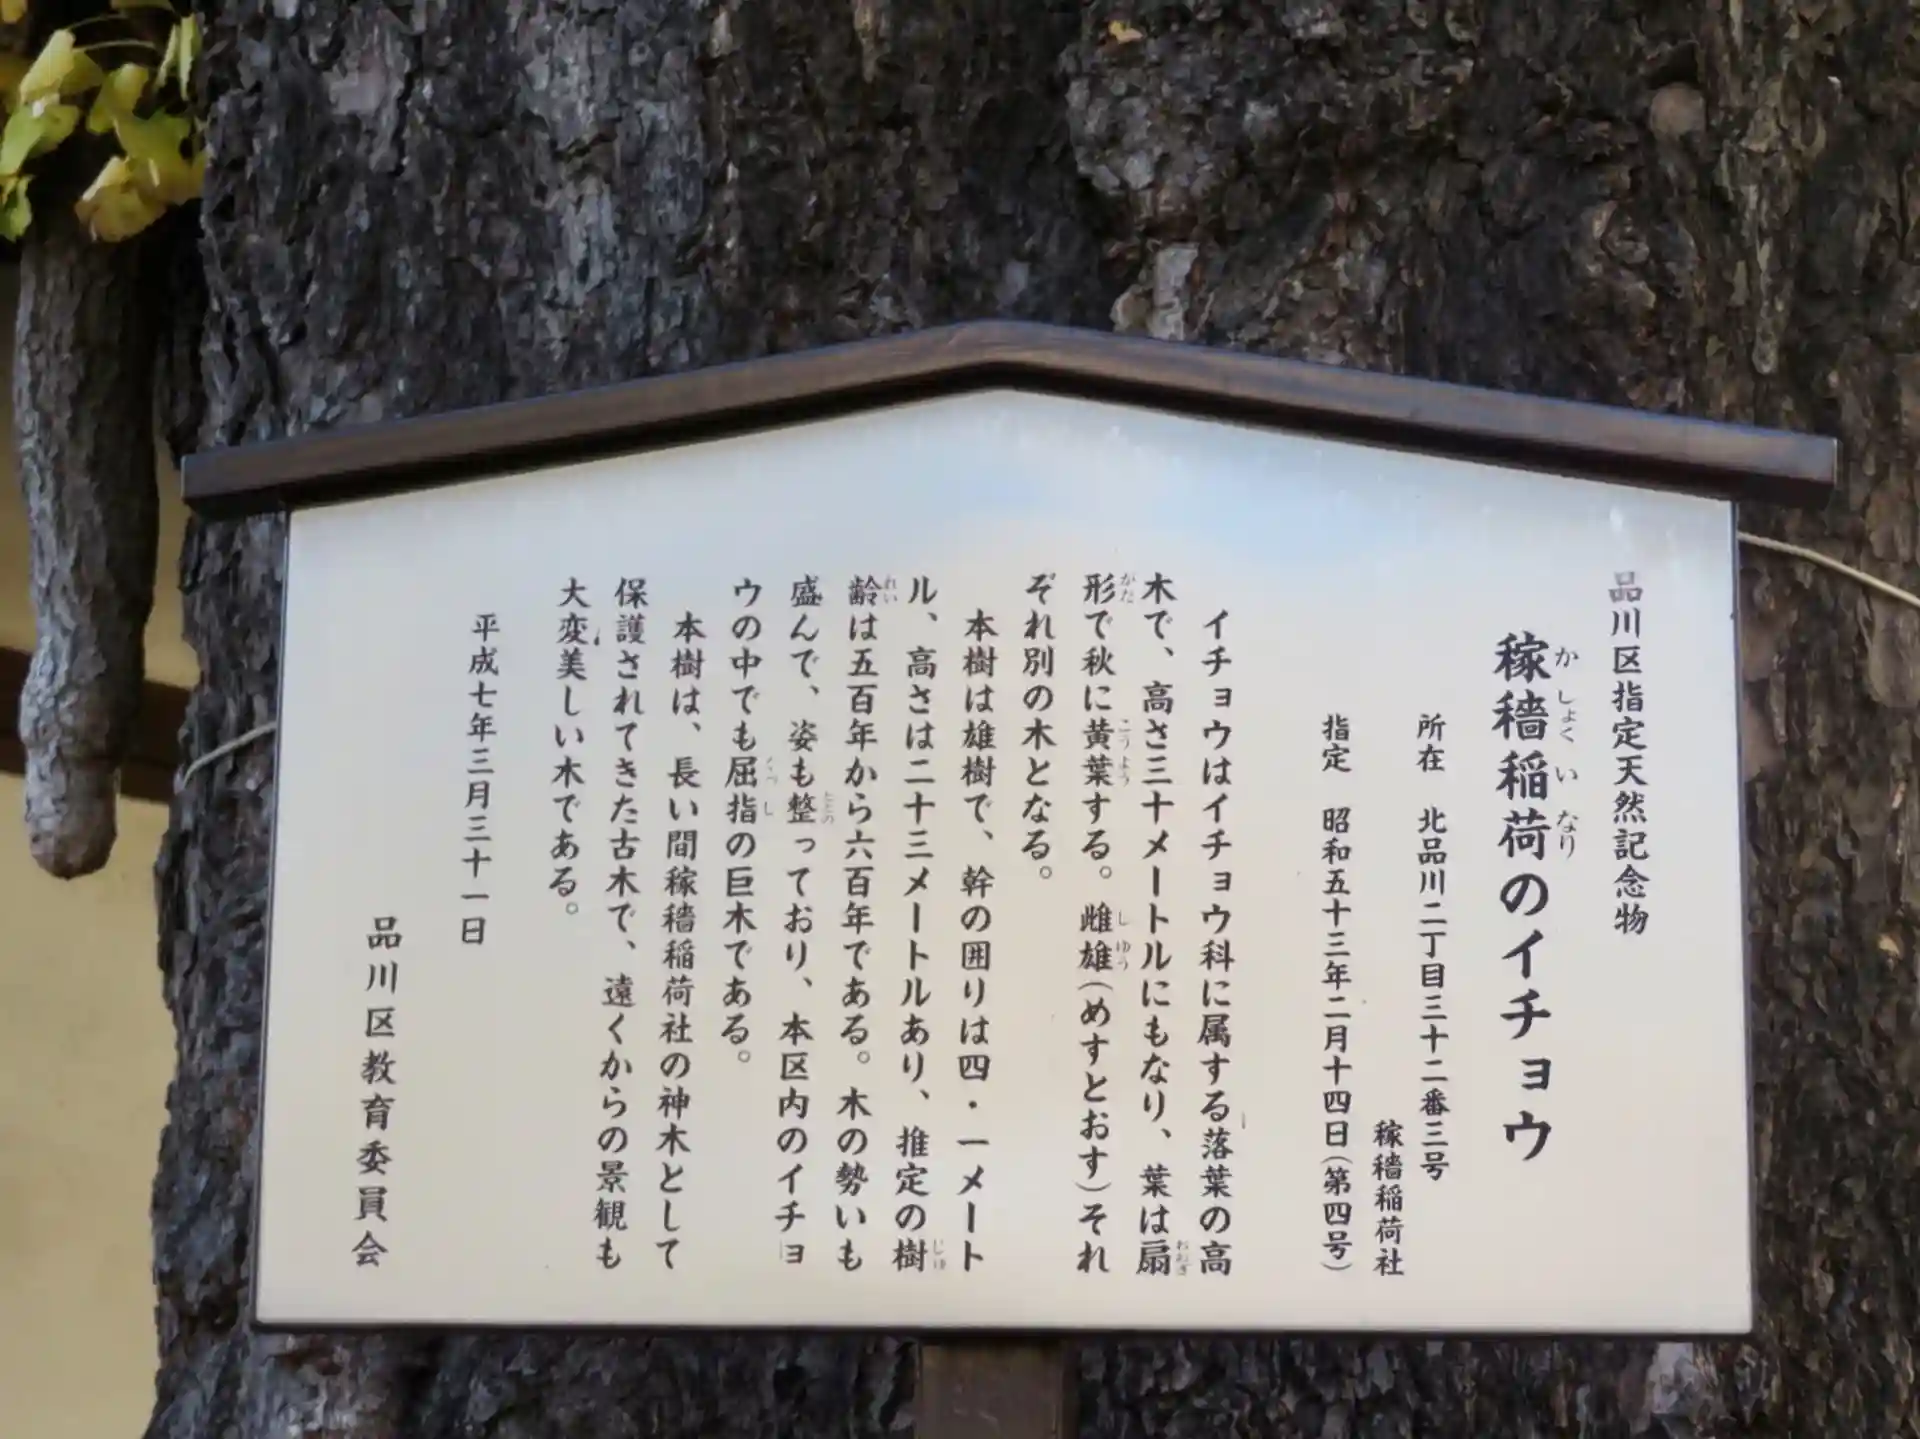 品川区指定天然記念物
稼穡稲荷のイチョウ
所在　北品川二丁目三十二番三号
稼穡稲荷社
指定　昭和五十三年二月十四日（第四号）
イチョウはイチョウ科に属する落葉の高
木で、高さ三十メートルにもなり、葉は扇
形で秋に黄葉する。雌雄（めすとおす）それ
ぞれ別の木となる。
本樹は雄樹で、幹の囲りは四・一メート
ル、高さは二十三メートルあり、推定の樹
齢は五百年から六百年である。木の勢いも
盛んで、姿も整っており、本区内のイチョ
ウの中でも屈指の巨木である。
本樹は、長い間稼穡稲荷社の神木として
保護されてきた古木で、遠くからの景観も
大変美しい木である。
平成七年三月三十一日
品川区教育委員会